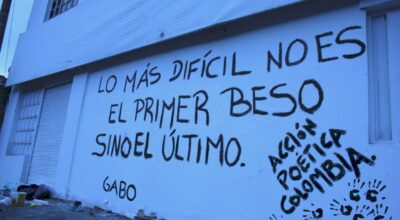 LO MÁS DIFÍCIL NO ES
EL PRIMER BESO
SINO EL ÚLTIMO.
GABO
ACCIÓN
POÉTICA
COLOMBIA.